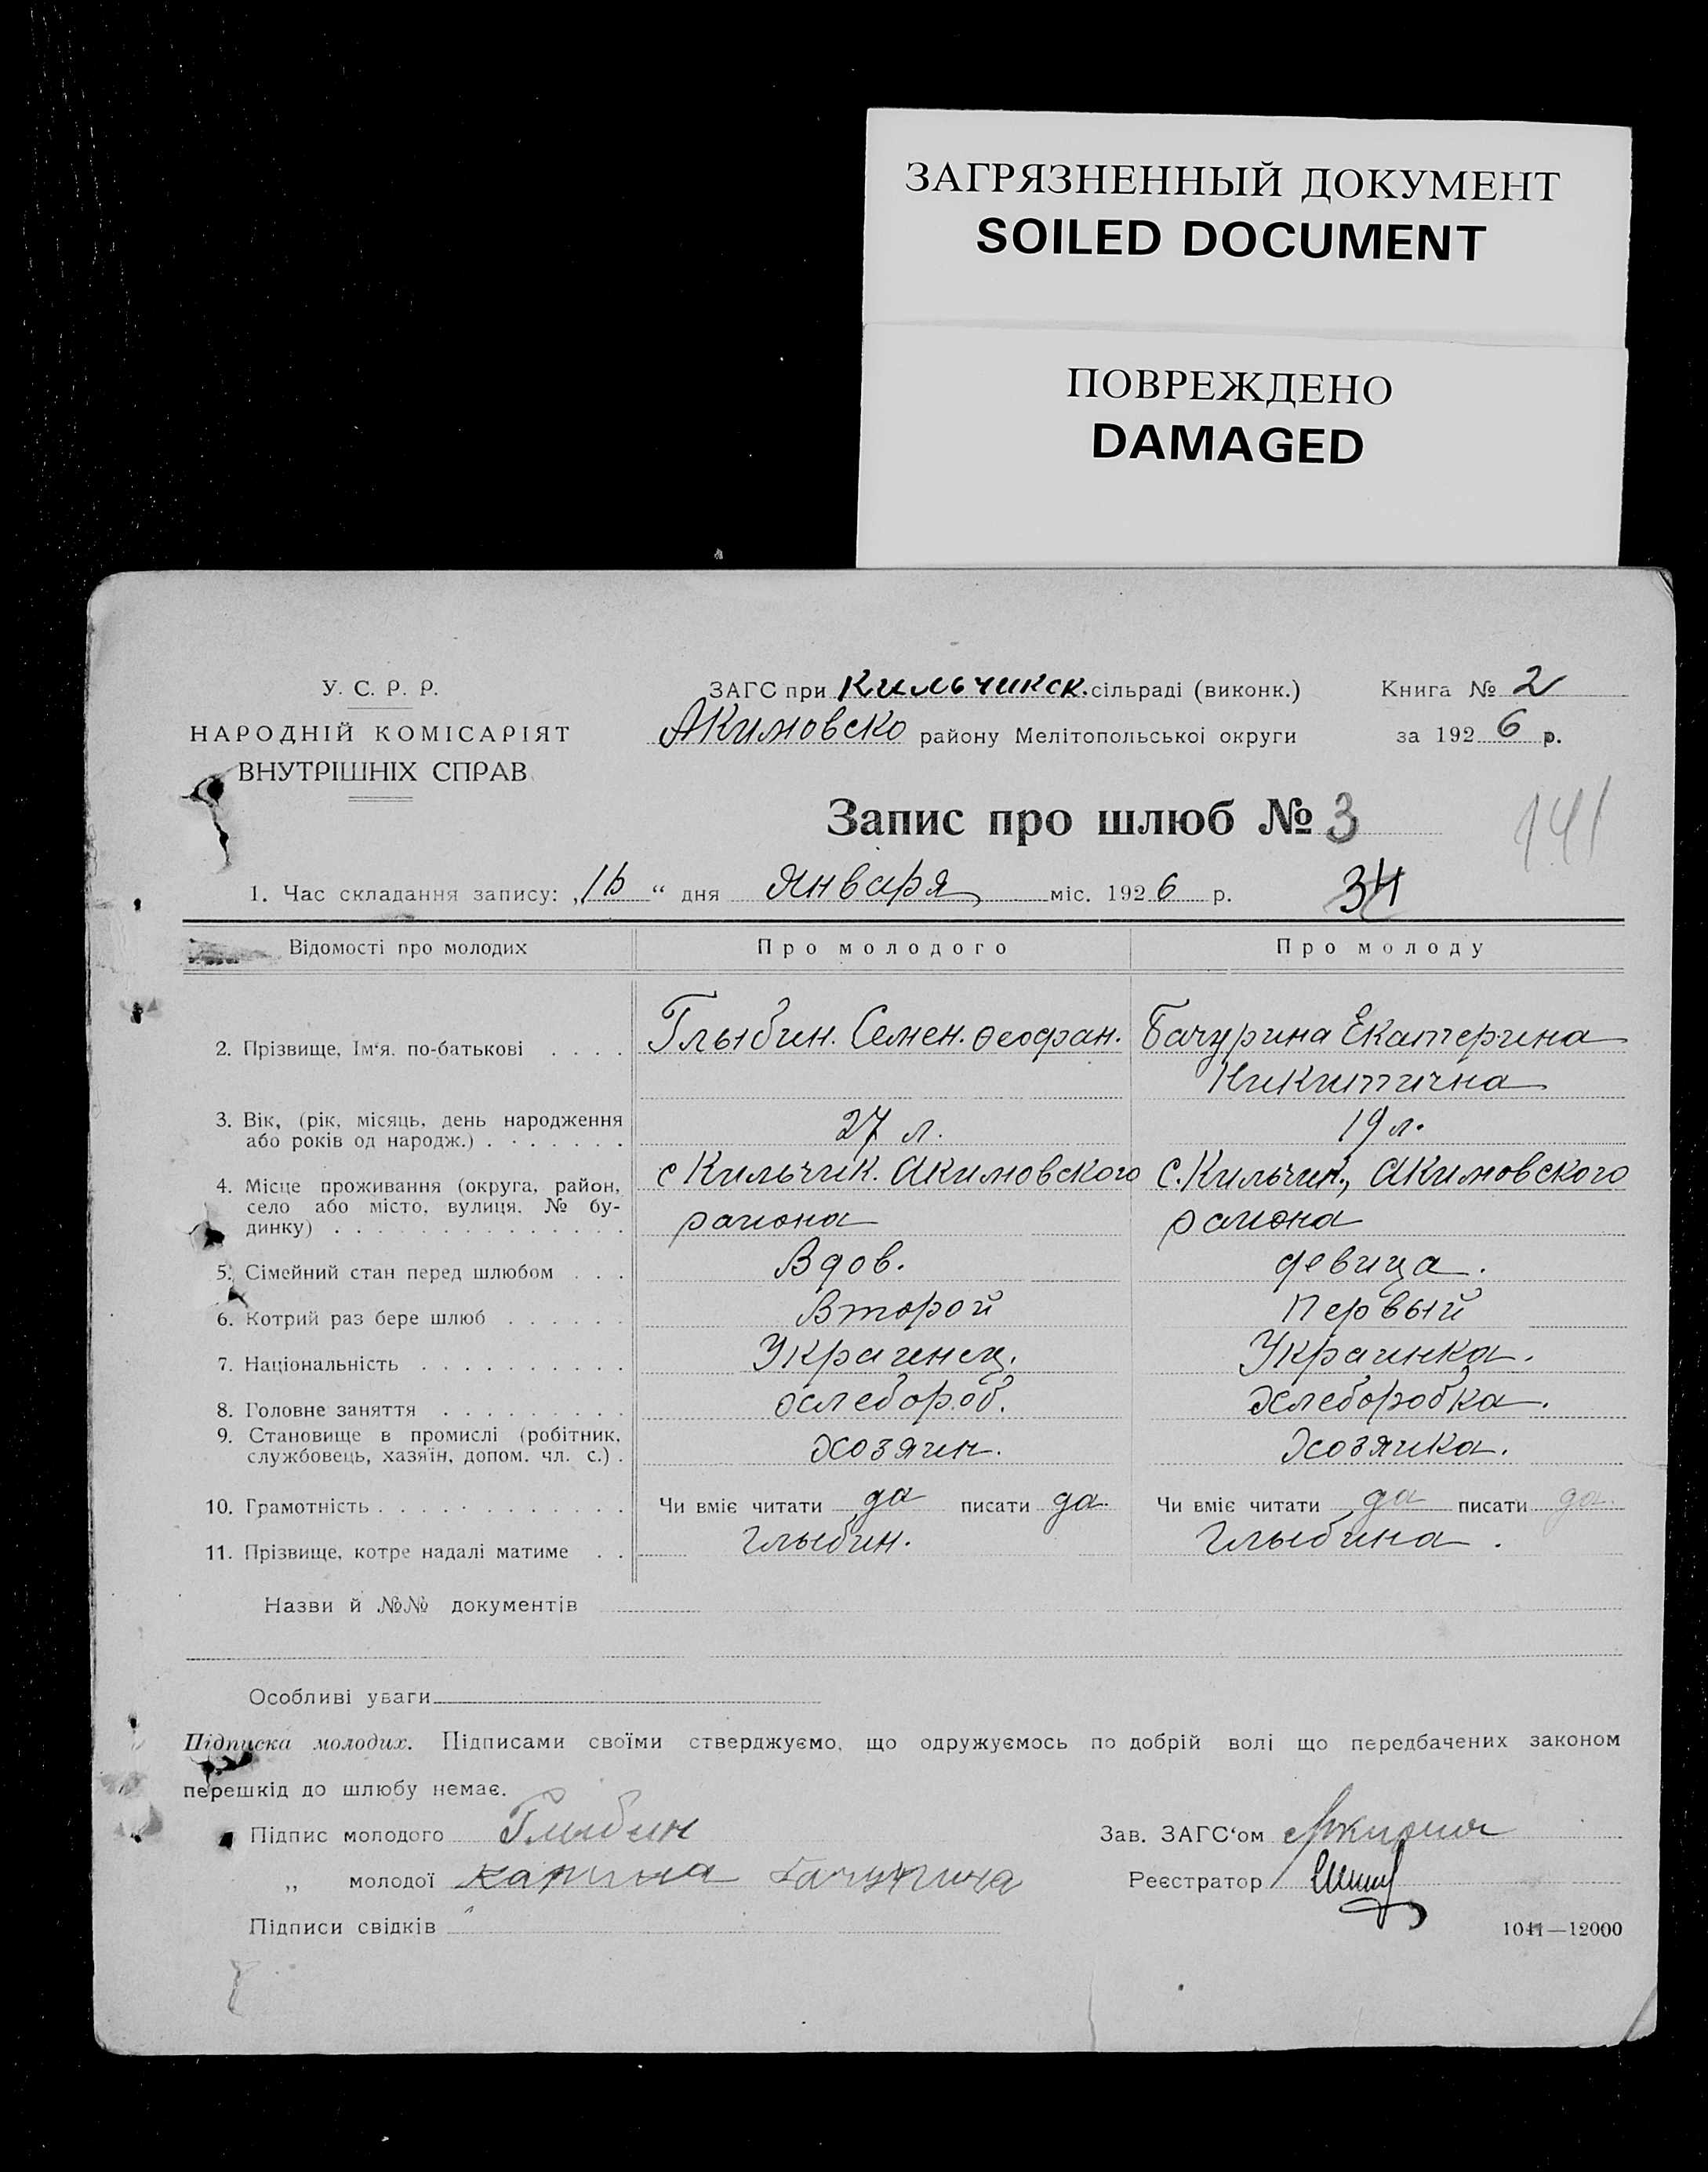 ЗАГРЯЗНЕННЫЙ ДОКУМЕНТ
SOILED DOCUMENT
ПОВРЕЖДЕНО
DAMAGED
У. С. Р. Р.
НАРОДНІЙ КОМІСАРІЯТ
ВНУТРІШНІХ СПРАВ
ЗАГС при Кильчикск. сільраді (виконк.)
Акимовско району Мелітопольської округи
Книга № 2
за 1926 р.
Запис про шлюб № 3
141
1. Час складання запису: „16“ дня Января міс. 1926 р.
34
Відомості про молодих Про молодого Про молоду
2. Прізвище, Ім'я, по-батькові . . . . Глыбин. Семен. Феофан. Бачурина Екатерина
Никитична
3. Вік, (рік, місяць, день народження
або років од народж.) . . . . . . . 27 л. 19 л.
4. Місце проживання (округа, район, с Кильчик. Акимовского С. Кильчик., Акимовского
село або місто, вулиця, № бу-
динку) . . . . . . . . . . . . . . района района
5. Сімейний стан перед шлюбом . . . Вдов. девица.
6. Котрий раз бере шлюб . . . . . . Второй Первый
7. Національність . . . . . . . . . . Украинец. Украинка.
8. Головне заняття . . . . . . . . . хлебороб. хлеборобка.
9. Становище в промислі (робітник,
службовець, хазяїн, допом. чл. с.) . хозяин. хозяйка.
10. Грамотність . . . . . . . . . . . . Чи вміє читати да писати да. Чи вміє читати да писати да.
11. Прізвище, котре надалі матиме . . Глыбин. Глыбина.
Назви й №№ документів
Особливі уваги
Підписка молодих. Підписами своїми стверджуємо, що одружуємось по добрій волі що передбачених законом
перешкід до шлюбу немає.
Підпис молодого Глыбин
Зав. ЗАГС'ом
„ молодої Бачурина
Реєстратор
Підписи свідків
1041—12000